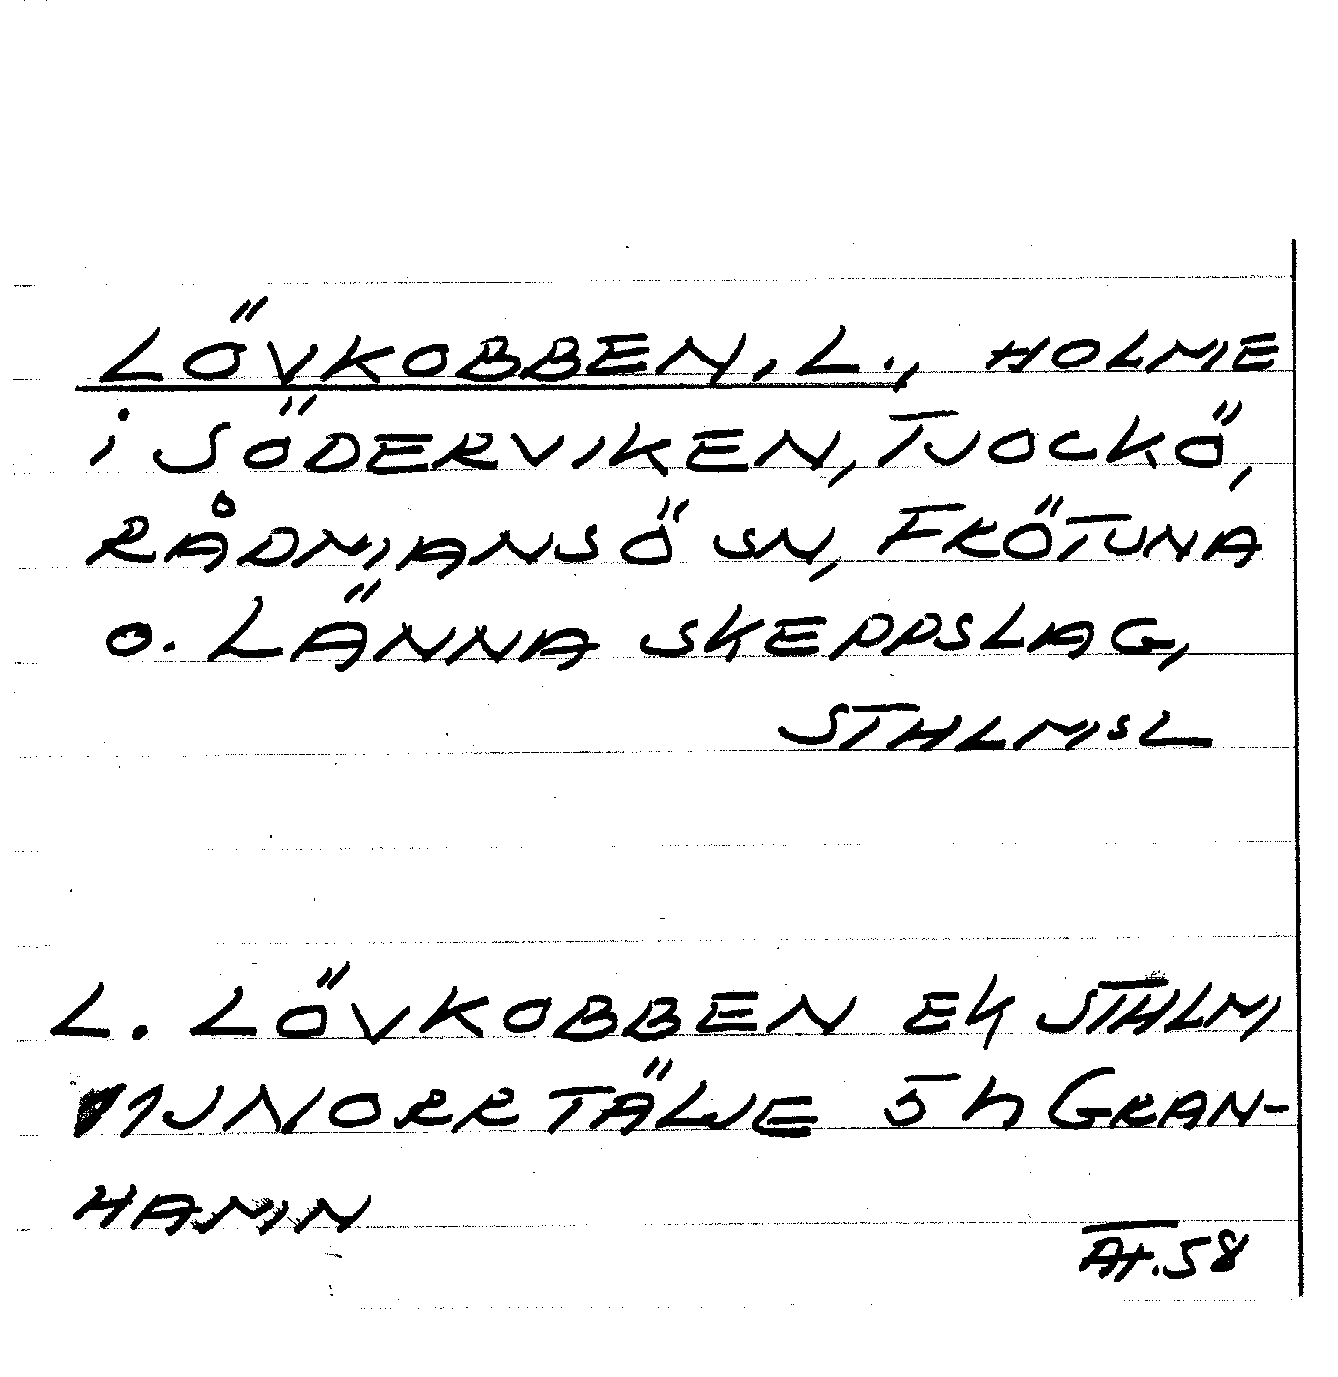 LÖVKOBBEN, L., HOLME
i SÖDERVIKEN, TJOCKÖ,
RÅDMANSÖ SN, FRÖTUNA
o. LÄNNA SKEPPSLAG,
STHLMSL
L. LÖVKOBBEN EK STHLM
11J NORRTÄLJE 5h GRAN-
HAMN
AH.58